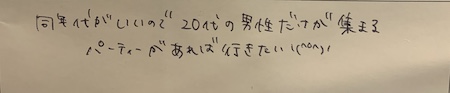 同年代がいいので 20代の男性だけが 集まる
パーティーがあれば行きたい!(^o^)!